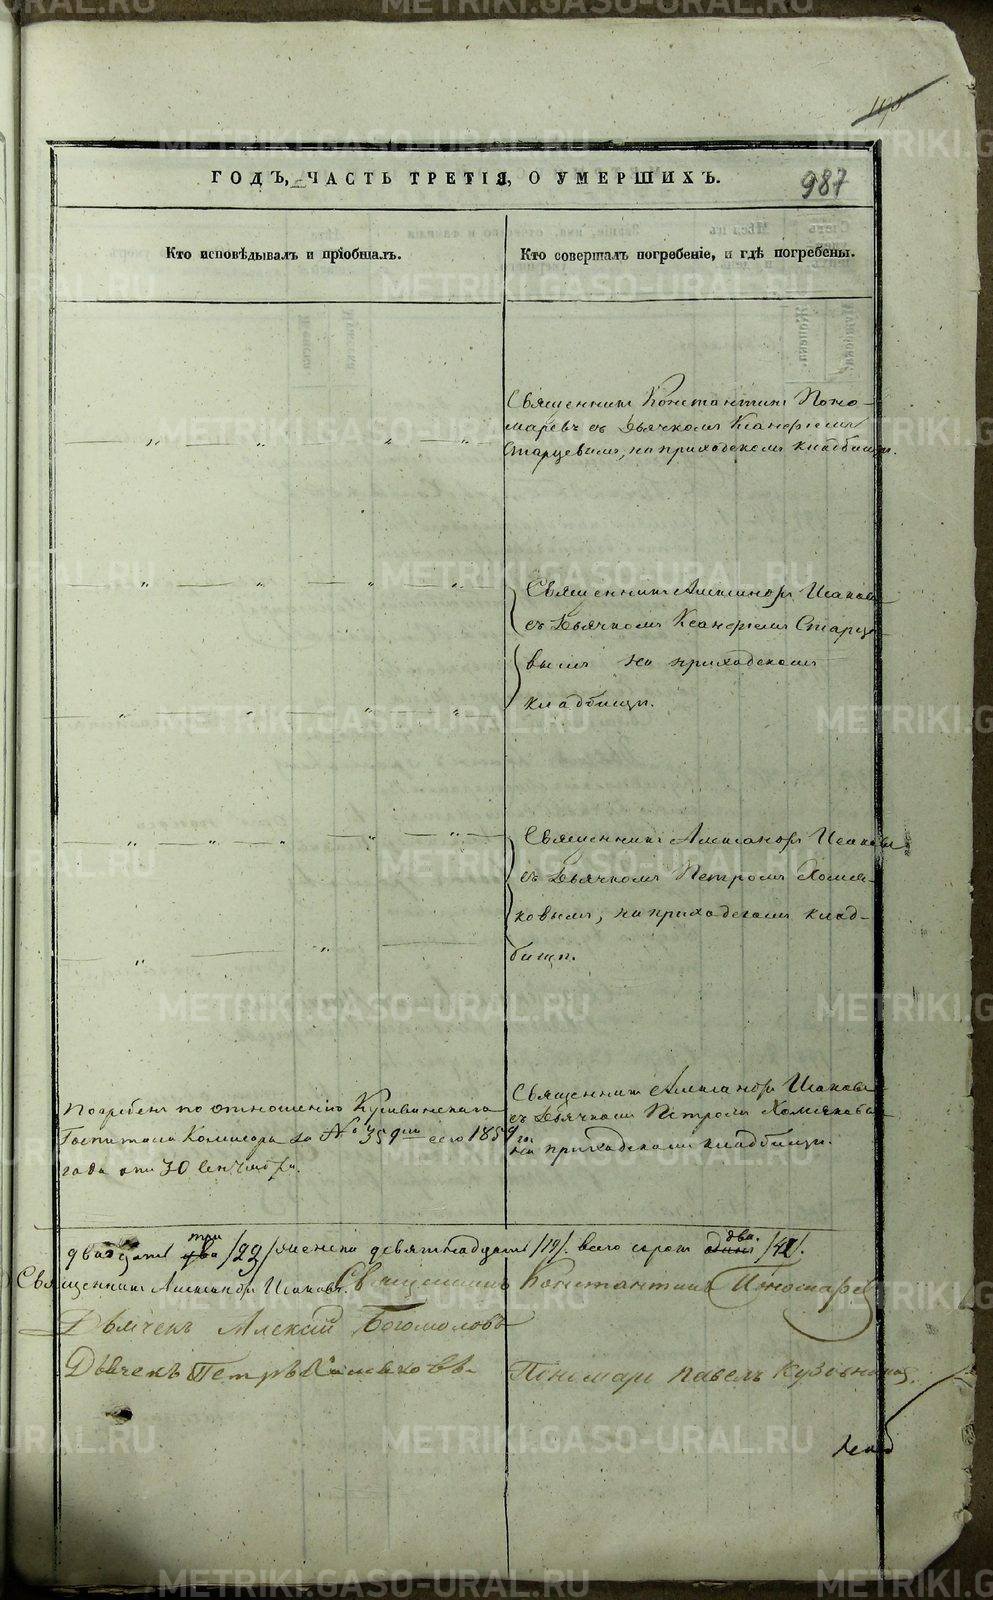 987
ГОДЪ, ЧАСТЬ ТРЕТІЯ, О УМЕРШИХЪ.
Кто исповѣдывалъ и пріобщалъ.
Кто совершалъ погребеніе, и гдѣ погребены.
Священникъ Константинъ Поно-
маревъ съ Дьячкомъ Ксанфіемъ
Старцевымъ, на приходскомъ кладбищѣ.
Священникъ Александръ Исаковъ
съ Дьячкомъ Ксанфіемъ Старце-
вымъ на приходскомъ
кладбищѣ.
Священникъ Александръ Исаковъ
съ Дьячкомъ Петромъ Хомя-
ковымъ, на приходскомъ клад-
бищѣ.
Погребенъ по отношенію Кушвинскаго
Госпиталя за № 359 сего 1859 го
года отъ 30 Сентября.
Священникъ Александръ Исаковъ
съ Дьячкомъ Петромъ Хомяковы
на приходскомъ кладбищѣ.
три два.
двадцать два /23/ женска девятнадцать /19/. всего сорокъ одинъ /42/.
Священникъ Александръ Исаковъ. Священникъ Константинъ Пономаревъ
Дьячекъ Алексій Богомоловъ
Дьячекъ Петръ Хомяковъ. Пономарь Павелъ
METRIKI.GASO-URAL.RU